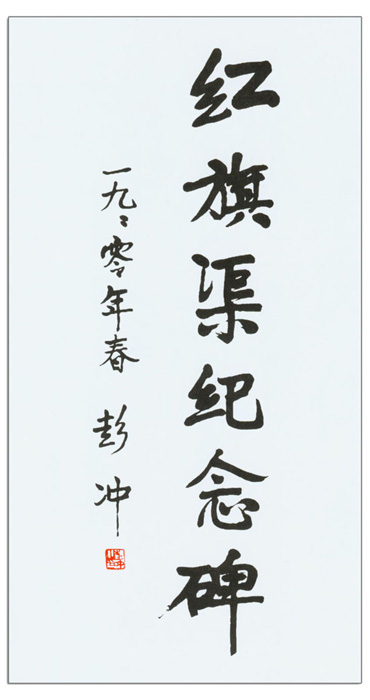 红旗渠纪念碑
一九九零年春 彭冲